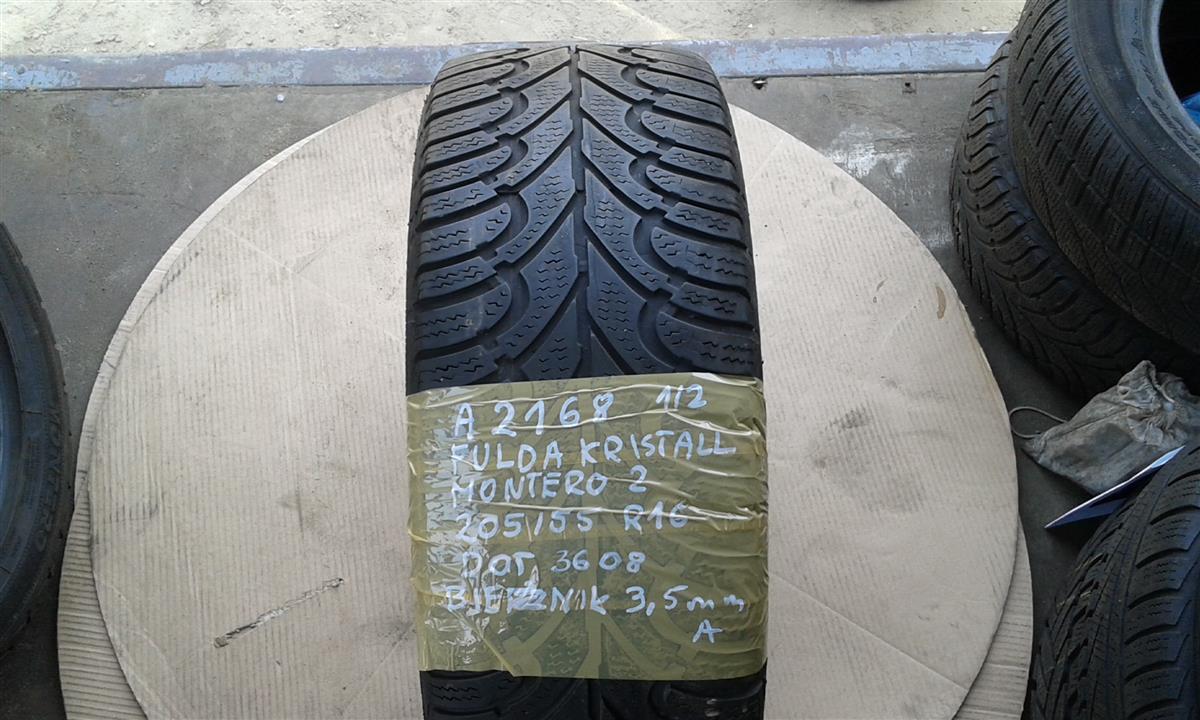 A 2168 1/2
FULDA KRISTALL
MONTERO 2
205/55 R16
DOT 3608
BIEŻNIK 3,5mm
A